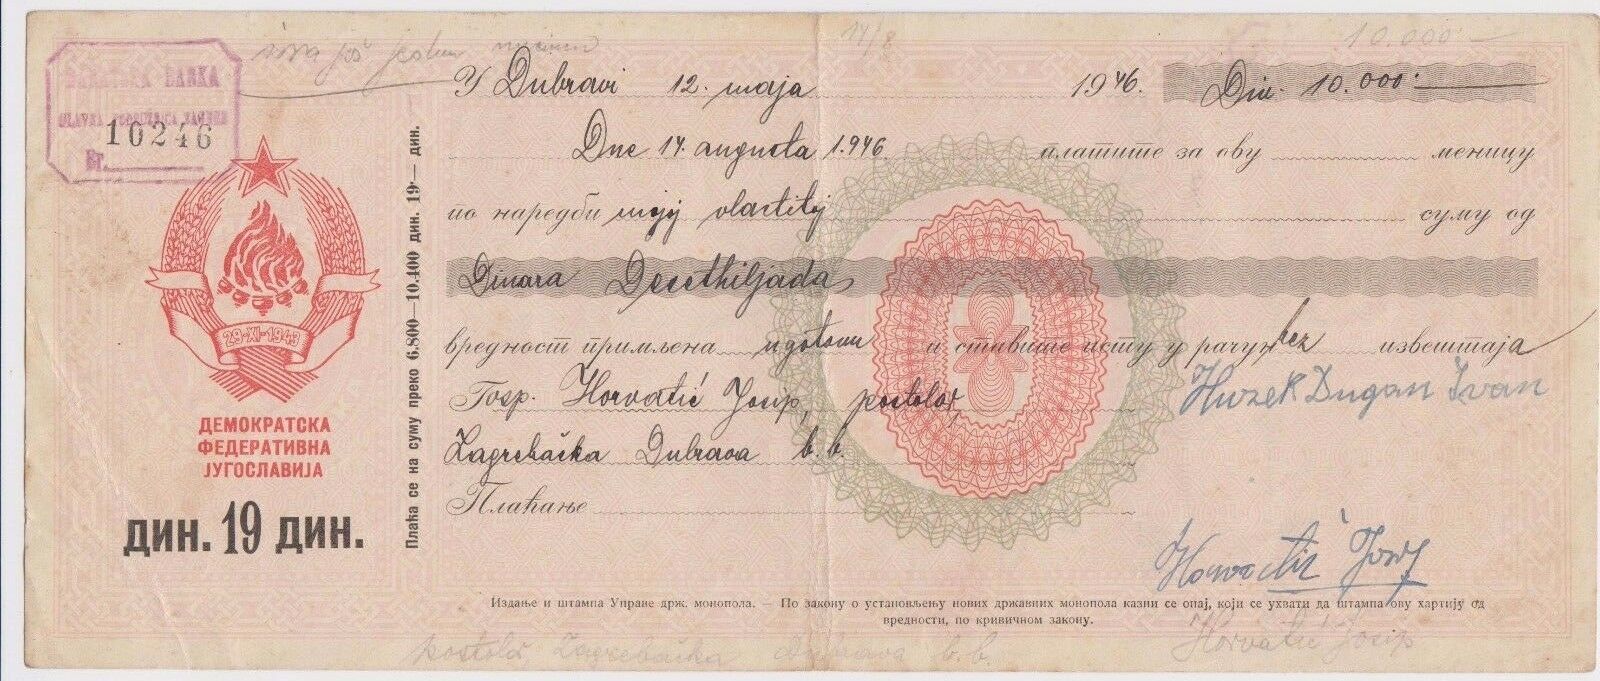 10.000
14/8
BANKA
10246
Br.
У Dubravi 12. maja 1946. Din. 10.000
Dne 14. augusta 1.946. платите за ову меницу
по наредби mojoj vlastitoj суму од
Dinara Desethiljada
вредност примљена u gotovu и ставите исту у рачун bez извештаја
Госп. Horvatić Josip, postolar,
Zagrebačka Dubrava b.b.
Плаћање
Dugan Ivan
Horvatić Josip
29·XI·1943
ДЕМОКРАТСКА
ФЕДЕРАТИВНА
ЈУГОСЛАВИЈА
дин. 19 дин.
Плаћа се на суму преко 6.800—10.400 дин. 19·— дин.
Издање и штампа Управе држ. монопола. — По закону о установљењу нових државних монопола казни се опај, који се ухвати да штампа ову хартију од
вредности, по кривичном закону.
Zagrebačka Dubrava b.b.
Horvatić Josip